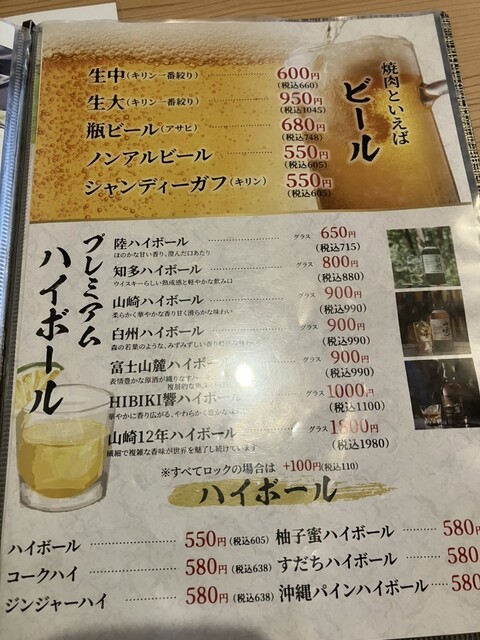 焼肉といえば
ビール
生中(キリン一番絞り) 600円
(税込660)
生大(キリン一番絞り) 950円
(税込1045)
瓶ビール(アサヒ) 680円
(税込748)
ノンアルビール 550円
(税込605)
シャンディーガフ(キリン) 550円
(税込605)
プレミアム
ハイボール
陸ハイボール グラス 650円
ほのかな甘い香り、澄んだ口あたり (税込715)
知多ハイボール グラス 800円
ウイスキーらしい熟成感と軽やかな飲み口 (税込880)
山崎ハイボール グラス 900円
柔らかく華やかな香り甘く滑らかな味わい (税込990)
白州ハイボール グラス 900円
森の若葉のような、みずみずしい香り (税込990)
富士山麓ハイボール グラス 900円
表情豊かな原酒が織りなす (税込990)
HIBIKI響ハイボール グラス 1000円
華やかに香り広がる、やわらかく (税込1100)
山崎12年ハイボール グラス 1800円
繊細で複雑な香味が世界を魅了し続けています (税込1980)
※すべてロックの場合は +100円(税込110)
ハイボール
ハイボール 550円(税込605)
コークハイ 580円(税込638)
ジンジャーハイ 580円(税込638)
柚子蜜ハイボール 580円
すだちハイボール 580
沖縄パインハイボール 580